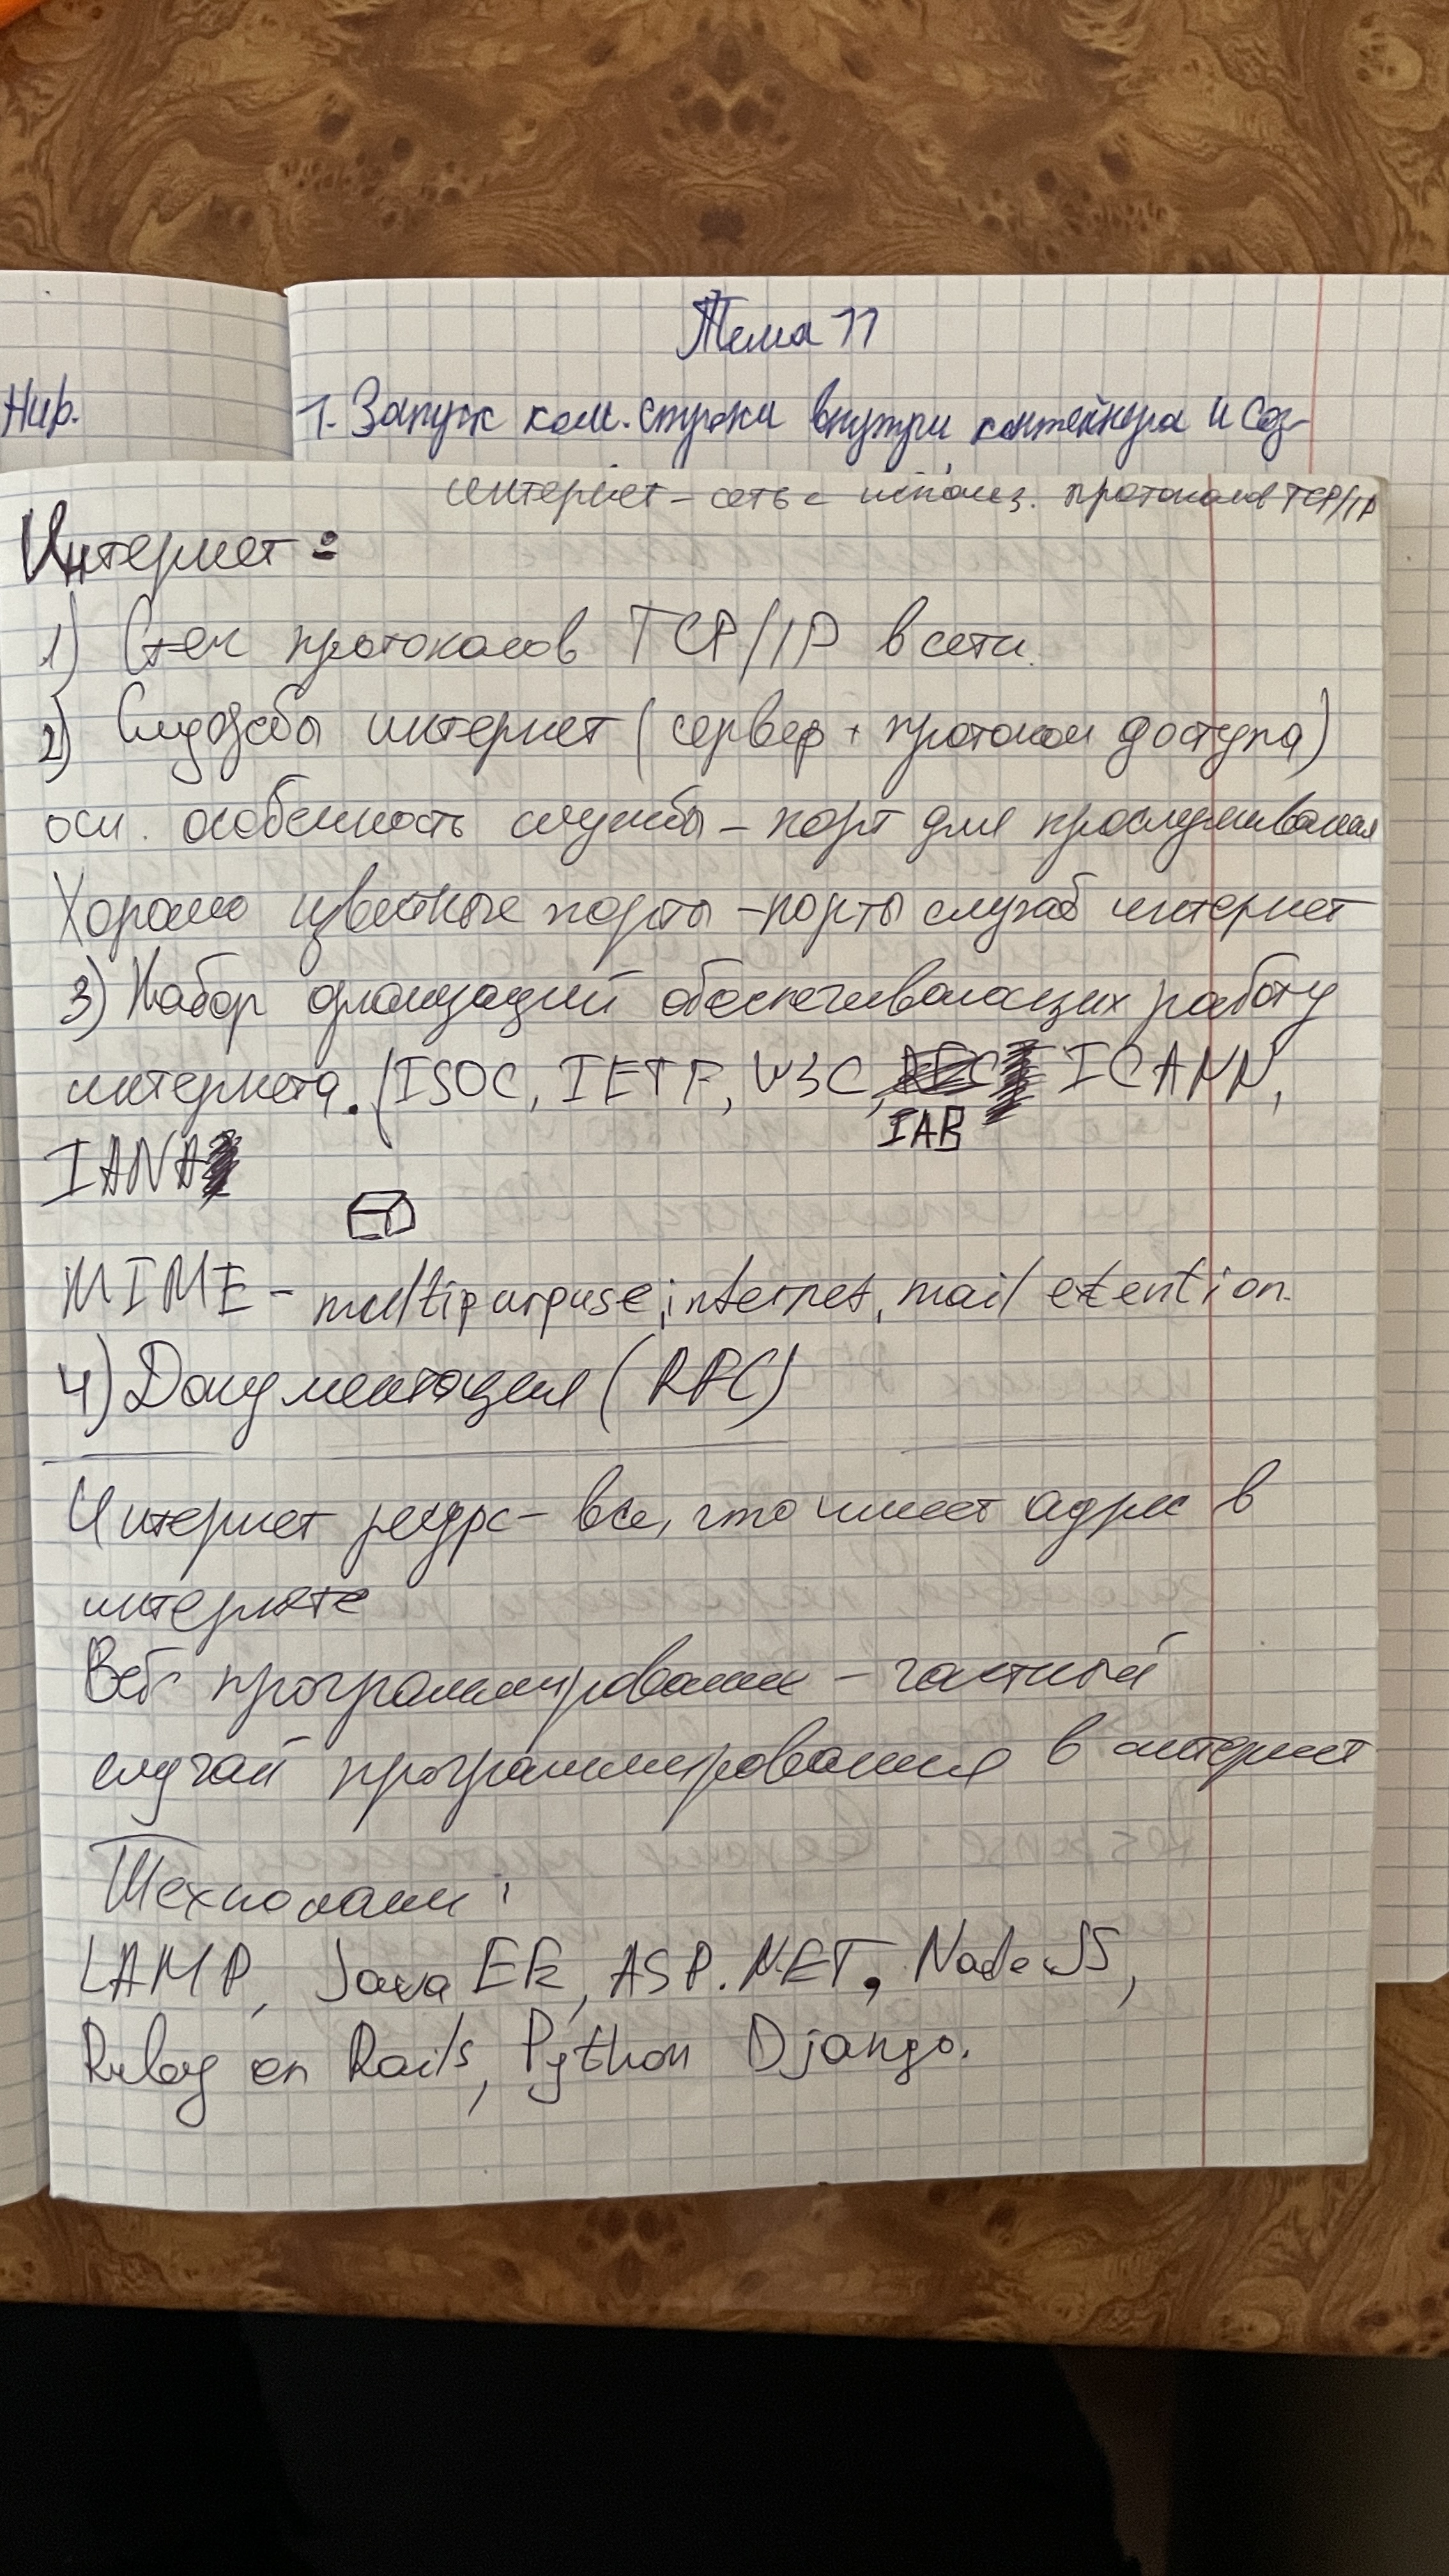 Тема 11
Hub.
1. Запуск ком. строки внутри контейнера и соз-
интернет - сеть с использ. протоколов TCP/IP
Интернет =
1) Стек протоколов TCP/IP в сети.
2) Службы интернет (сервер + протокол доступа)
осн. особенность службы - порт для прослушивания
Хорошо извесные порты - порты служб интернет
3) Набор организаций обеспечивающих работу
интернета. (ISOC, IETF, W3C, ICANN,
IAB
IANA
MIME - multipurpuse, internet, mail extention.
4) Документация (RFC)
Интернет ресурс - все, что имеет адрес в
интернете
Веб программирование - частный
случай программирования в интернет
Технологии:
LAMP, Java EE, ASP.NET, Node JS,
Ruby on Rails, Python Django.